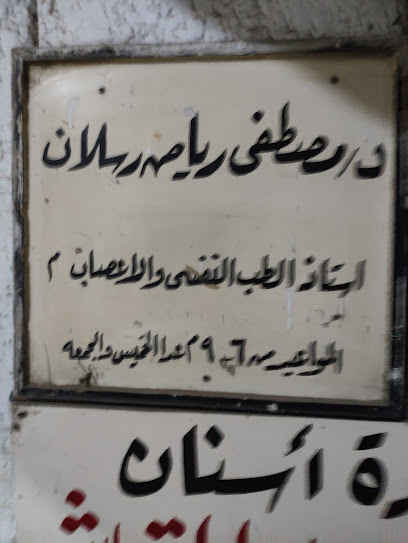 د/ مصطفى رياض رسلان
استاذ الطب النفسى والاعصاب م
المواعيد من ٦ - ٩ م عدا الخميس والجمعه
رة أسنان